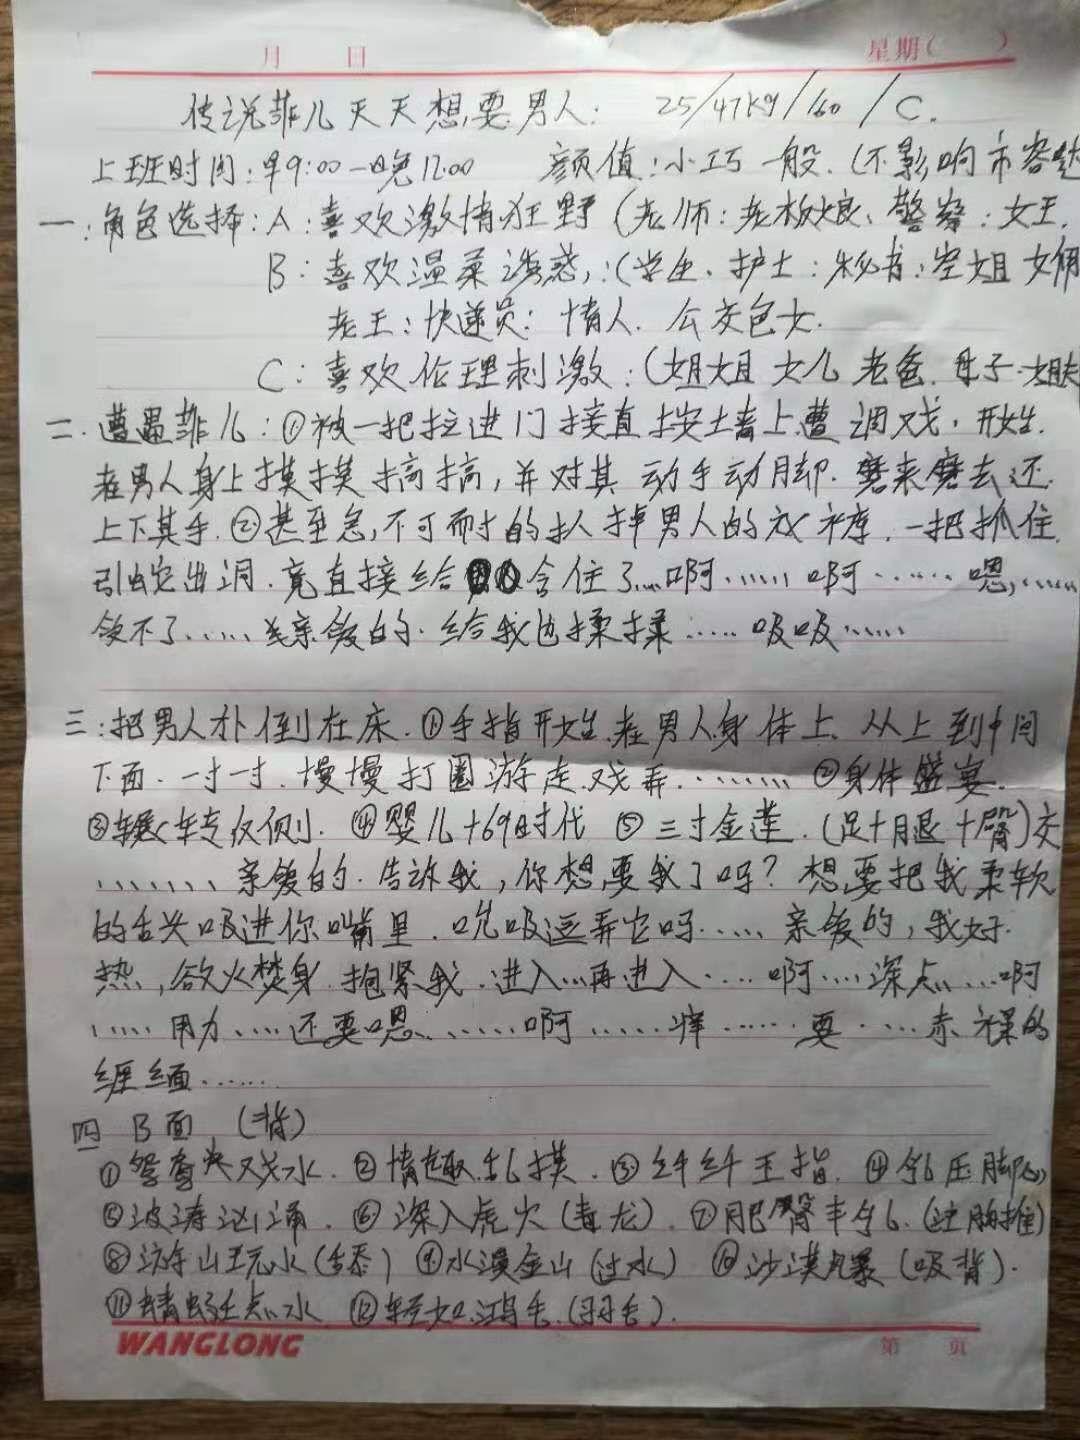 月 日 星期( )
传说菲儿天天想要男人: 25/47kg/160/C.
上班时间:早9:00—晚12:00 颜值:小巧一般.(不影响市容
一:角色选择:A:喜欢激情狂野(老师:老板娘、警察:女王.
B:喜欢温柔诱惑:(学生、护士:秘书:空姐
老王:快递员:情人.公交色女.
C:喜欢伦理刺激:(姐姐 女儿 老爸.母子.
二.遭遇菲儿:①被一把拉进门接直按土墙上遭调戏,开始.
在男人身上摸摸搞搞,并对其动手动脚.磨来磨去还.
上下其手.②甚至急,不可耐的扒掉男人的衣裤.一把抓住.
引蛇出洞.竟直接给含住了....啊...... 啊....... 嗯,......
受不了......亲爱的.给我也揉揉......吸吸......
三:把男人扑倒在床.①手指开始.在男人身体上.从上到中间
下面.一寸一寸.慢慢打圈游走.戏弄........ ②身体盛宴.
③辗转反侧.④婴儿+69时代 ⑤三寸金莲.(足+腿+臀)交
....... 亲爱的.告诉我,你想要我了吗?想要把我柔软
的舌头吸进你嘴里.吮吸逗弄它吗..... 亲爱的,我好.
热,欲火焚身.抱紧我.进入...再进入....啊....深点....啊
.....用力....还要嗯.......啊......痒......要.....赤裸的
缠绵......
四 B面 (背)
①鸳鸯戏水.②情趣乱摸.③纤纤玉指.④
⑤波涛汹涌.⑥深入虎穴(毒龙).⑦肥臀丰乳.(
⑧游山玩水(舔)⑨水漫金山(过水)⑩沙漠风暴(吸背).
⑪蜻蜓点水 ⑫轻如鸿毛.(羽毛).
WANGLONG 第 页